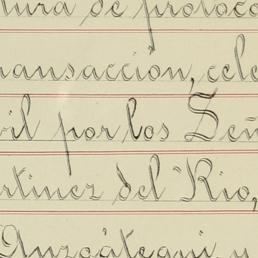 tura de protoco
ransacción, cele
vil por los Señ
rtinez del Rio,
Anzcátegui, y